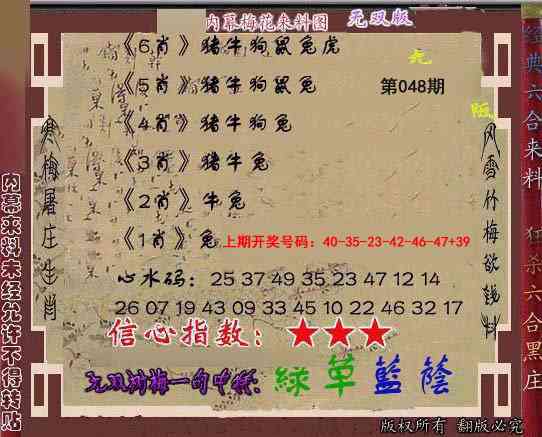 内幕梅花来料图 无双版
《6肖》猪牛狗鼠兔虎
《5肖》猪牛狗鼠兔
第048期
《4肖》猪牛狗兔
《3肖》猪牛兔
《2肖》牛兔
《1肖》兔 上期开奖号码：40-35-23-42-46-47+39
心水码：25 37 49 35 23 47 12 14
26 07 19 43 09 33 45 10 22 46 32 17
信心指数：★★★
绿草蓝荫
寒梅屠庄生肖
风雪竹梅欲钱料
内幕来料未经允许不得转贴
经典六合来料 狂杀六合黑庄
版权所有 翻版必究